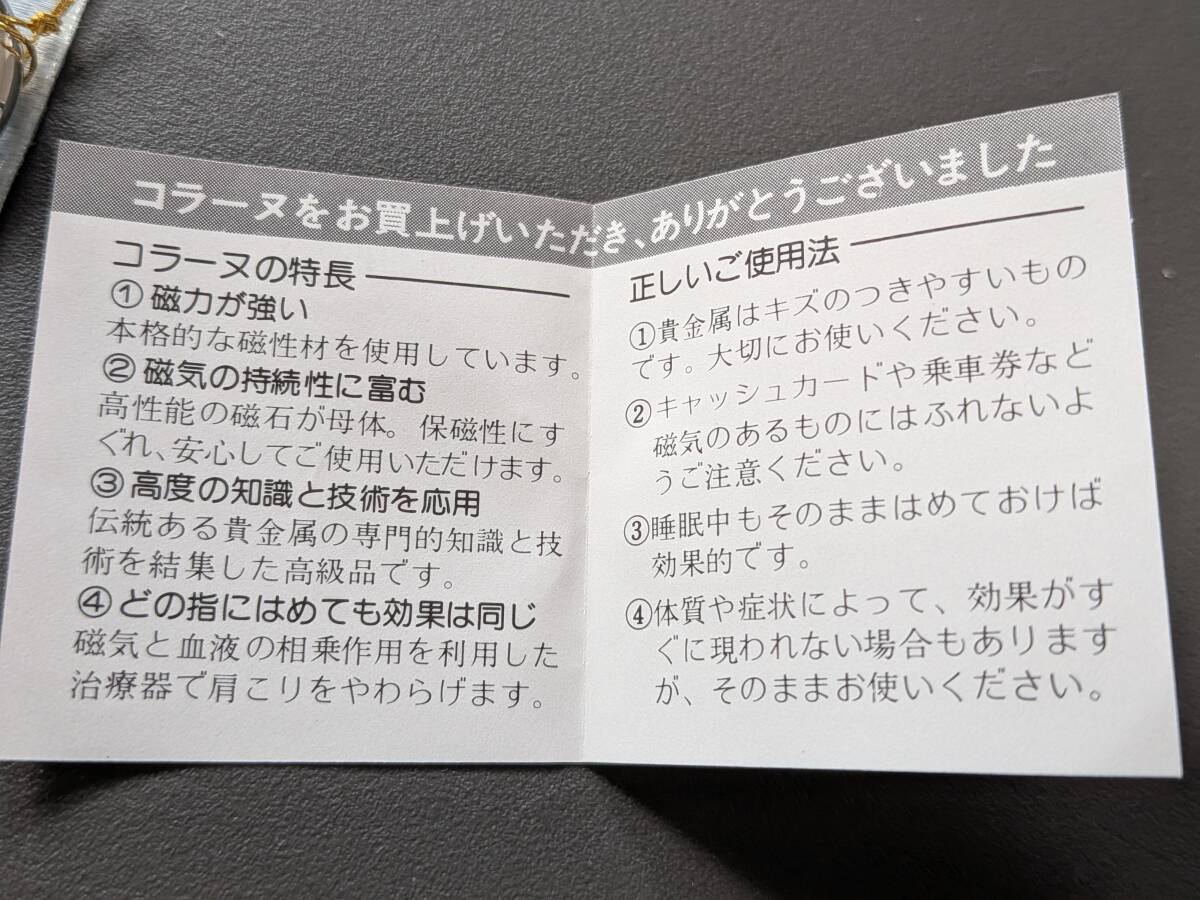 コラーヌをお買上げいただき、ありがとうございました
コラーヌの特長
①磁力が強い
本格的な磁性材を使用しています。
②磁気の持続性に富む
高性能の磁石が母体。保磁性にす
ぐれ、安心してご使用いただけます。
③高度の知識と技術を応用
伝統ある貴金属の専門的知識と技
術を結集した高級品です。
④どの指にはめても効果は同じ
磁気と血液の相乗作用を利用した
治療器で肩こりをやわらげます。
正しいご使用法
①貴金属はキズのつきやすいもの
です。大切にお使いください。
②キャッシュカードや乗車券など
磁気のあるものにはふれないよ
うご注意ください。
③睡眠中もそのままはめておけば
効果的です。
④体質や症状によって、効果がす
ぐに現われない場合もあります
が、そのままお使いください。